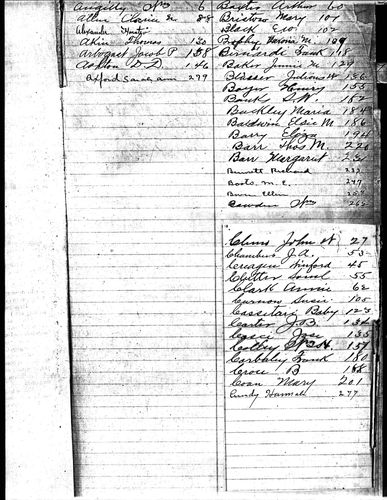 Angelly Wm 6
Allen Clarice E. 88
Alexander Hunter
Akin Thomas 130
Arbogast Jacob P. 158
Ashton D. D. 146
Axford Sarah ann 279
Baptis Arthur 60
Bristow Mary 101
Black Ewo. 102
Bephy Marie M. 109
Bernardi Frank 118
Baker Jennie M. 129
Blasier Julious W. 136
Boyer Henry 155
Banks S. W. 182
Buckley Maria 184
Baldwin Elsie M. 186
Barry Eliza 194
Barr Thos M. 220
Barr Margaret 221
Bennett Richard 232
Boots M. E. 247
Bowen Ellen 257
Bowden Wm 266
Clims John W 27
Chambers J. A. 53
Creagin Winford 45
Chetter Saml 55
Clark Annie 62
Curnow Susie 100
Casselari Baby 123
Carter J. B. 134
Casaci Jose 135
Colley W. H. 157
Corbeley Frank 180
Croce B 188
Coan Mary 201
Cundy Hannah 277